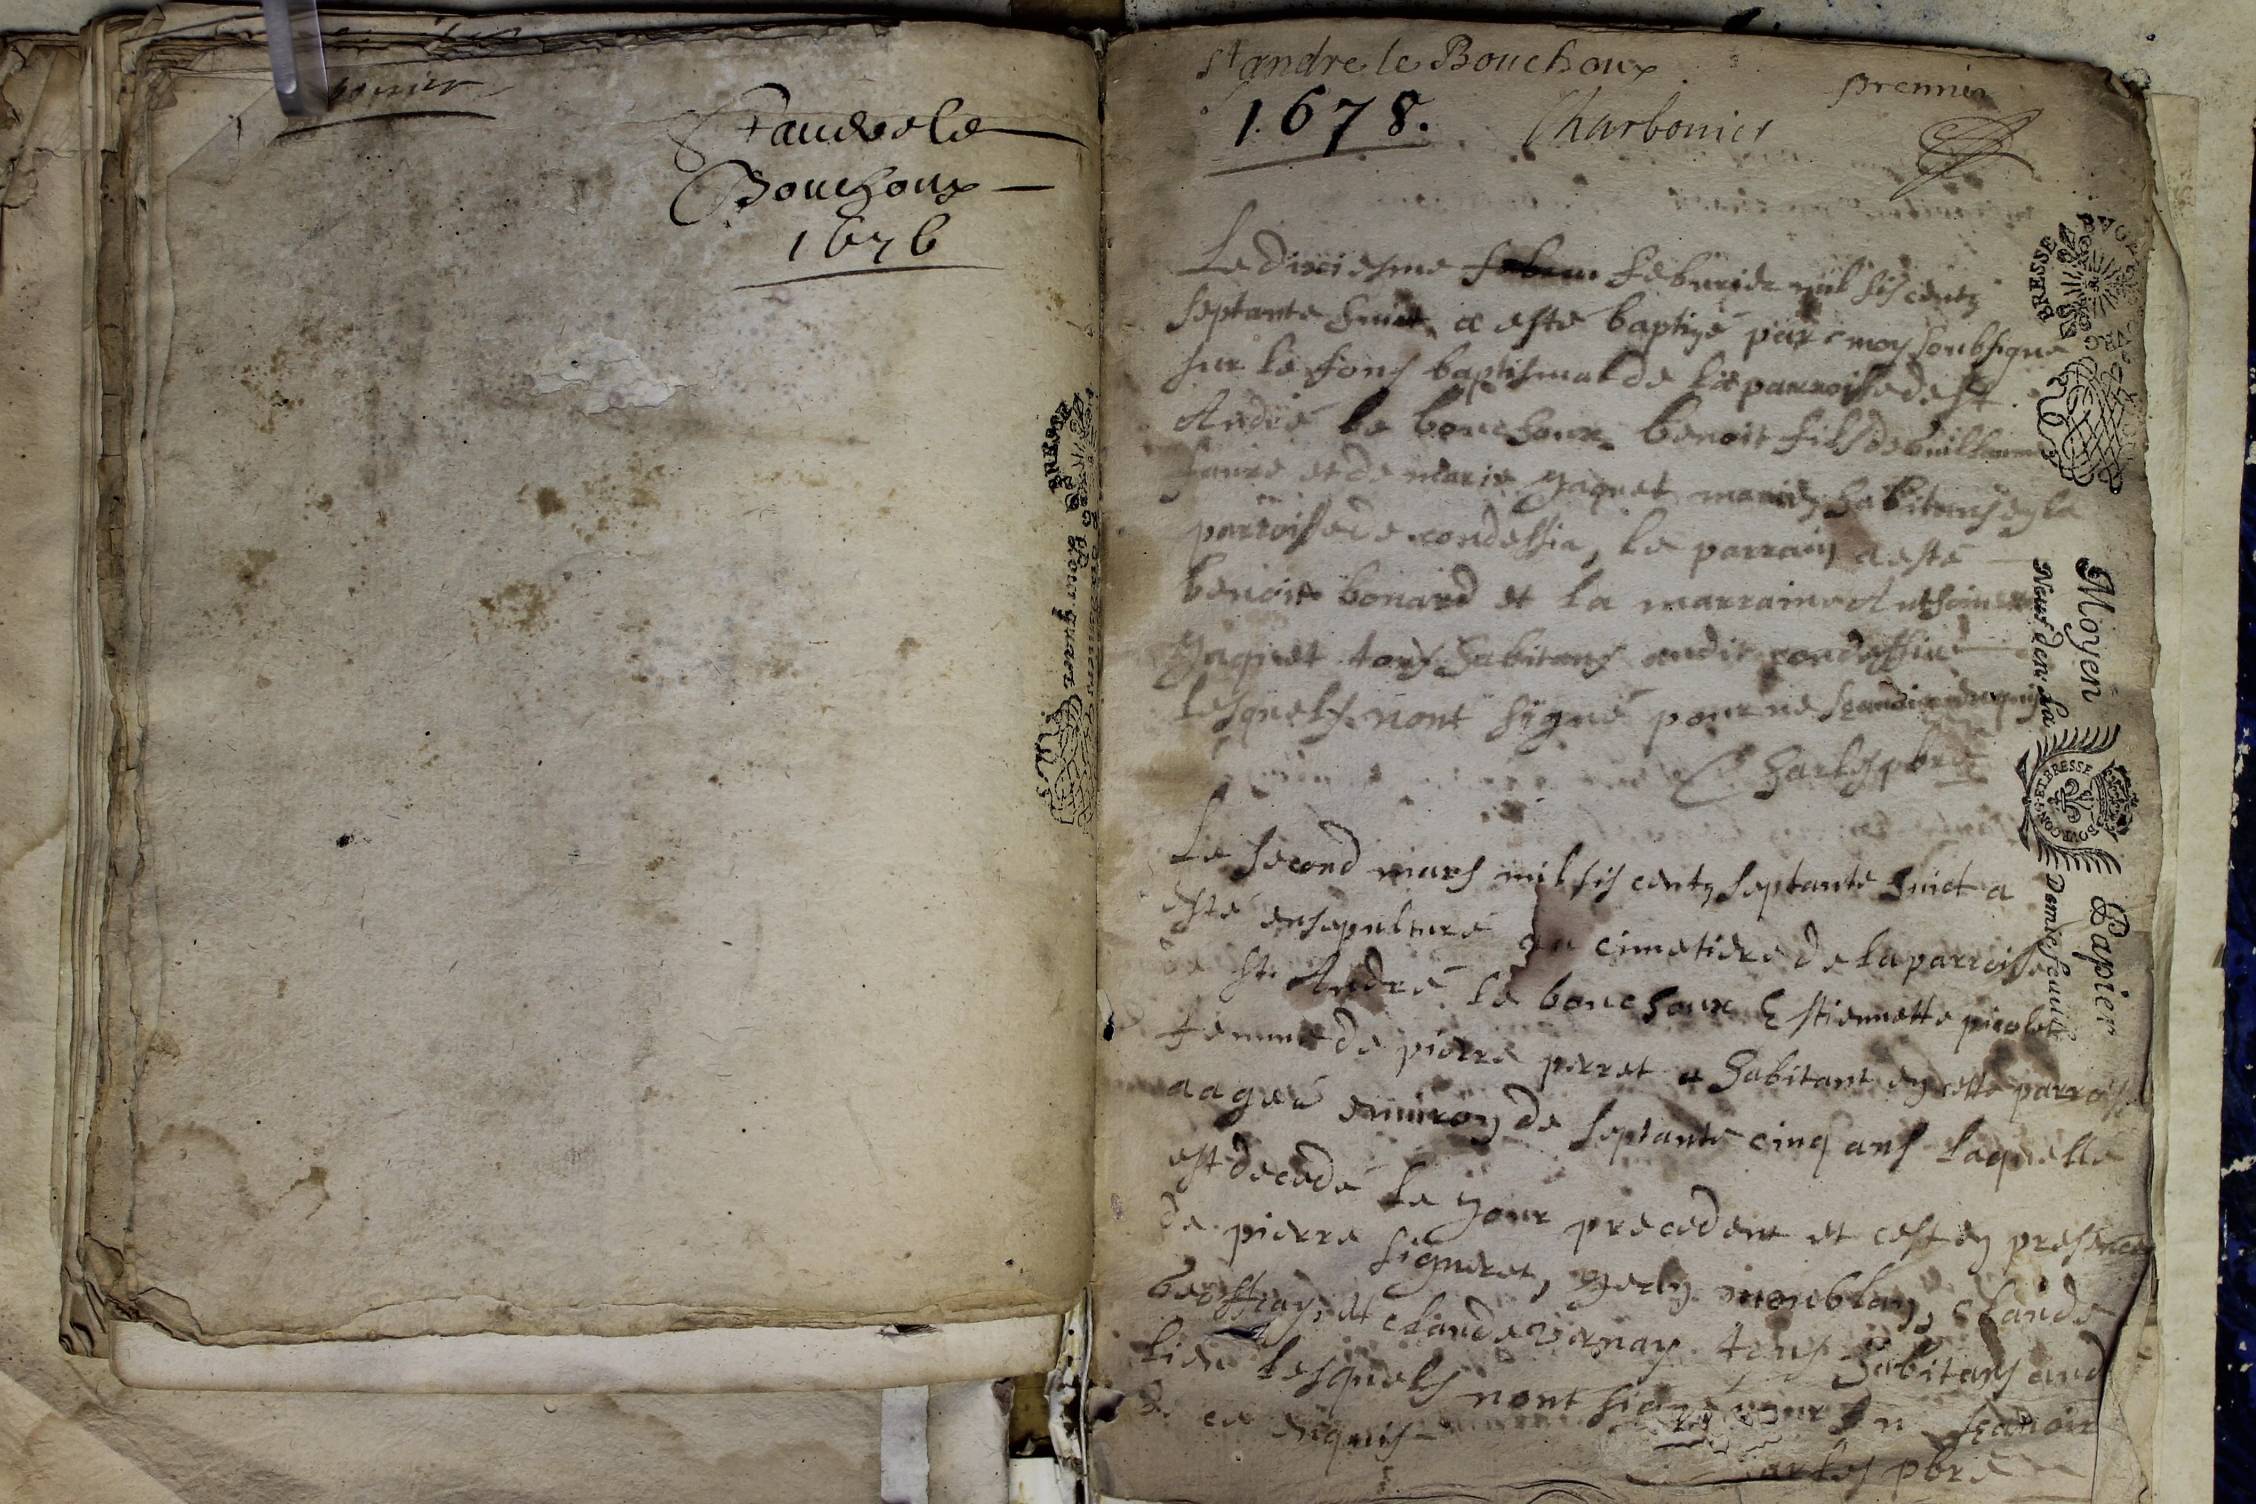 St andre le
Bouchoux
1676
St andre le Bouchoux
premier
1678. Charbonier
Le dixiesme febvrier mil six centz
septante huict a esté baptizé par moy soubsigné
sur le fons baptismal de la parroisse de st
André le bouchoux benoit fils de Guillaume
faure et de marie yaquet mariez habitans en la
parroisse de condessia, le parrain a esté
benoit bonard et la marraine Anthoine
yaquet tous habitans audit condessia
lesquels nont signé pour ne scavoir enquis
Charles pbre
Le second mars mil six centz septante huict a
esté ensepulturé au cimetiere de la parroisse
de st André le bouchoux Estiennette picolet
femme de pierre perret habitant en cette parroisse
aagée environ de septante cinq ans laquelle
est decedé le your precedent et cest en presence
de pierre figueret, claude
et claude vernay tous habitans aud
lieu lesquels nont signé pour scavoir
de ce enquis
pbre
BRESSE
BRESSE
Moyen Papier
Neuf den. la Demie feuil
BOVRGONG. ET. BRESSE